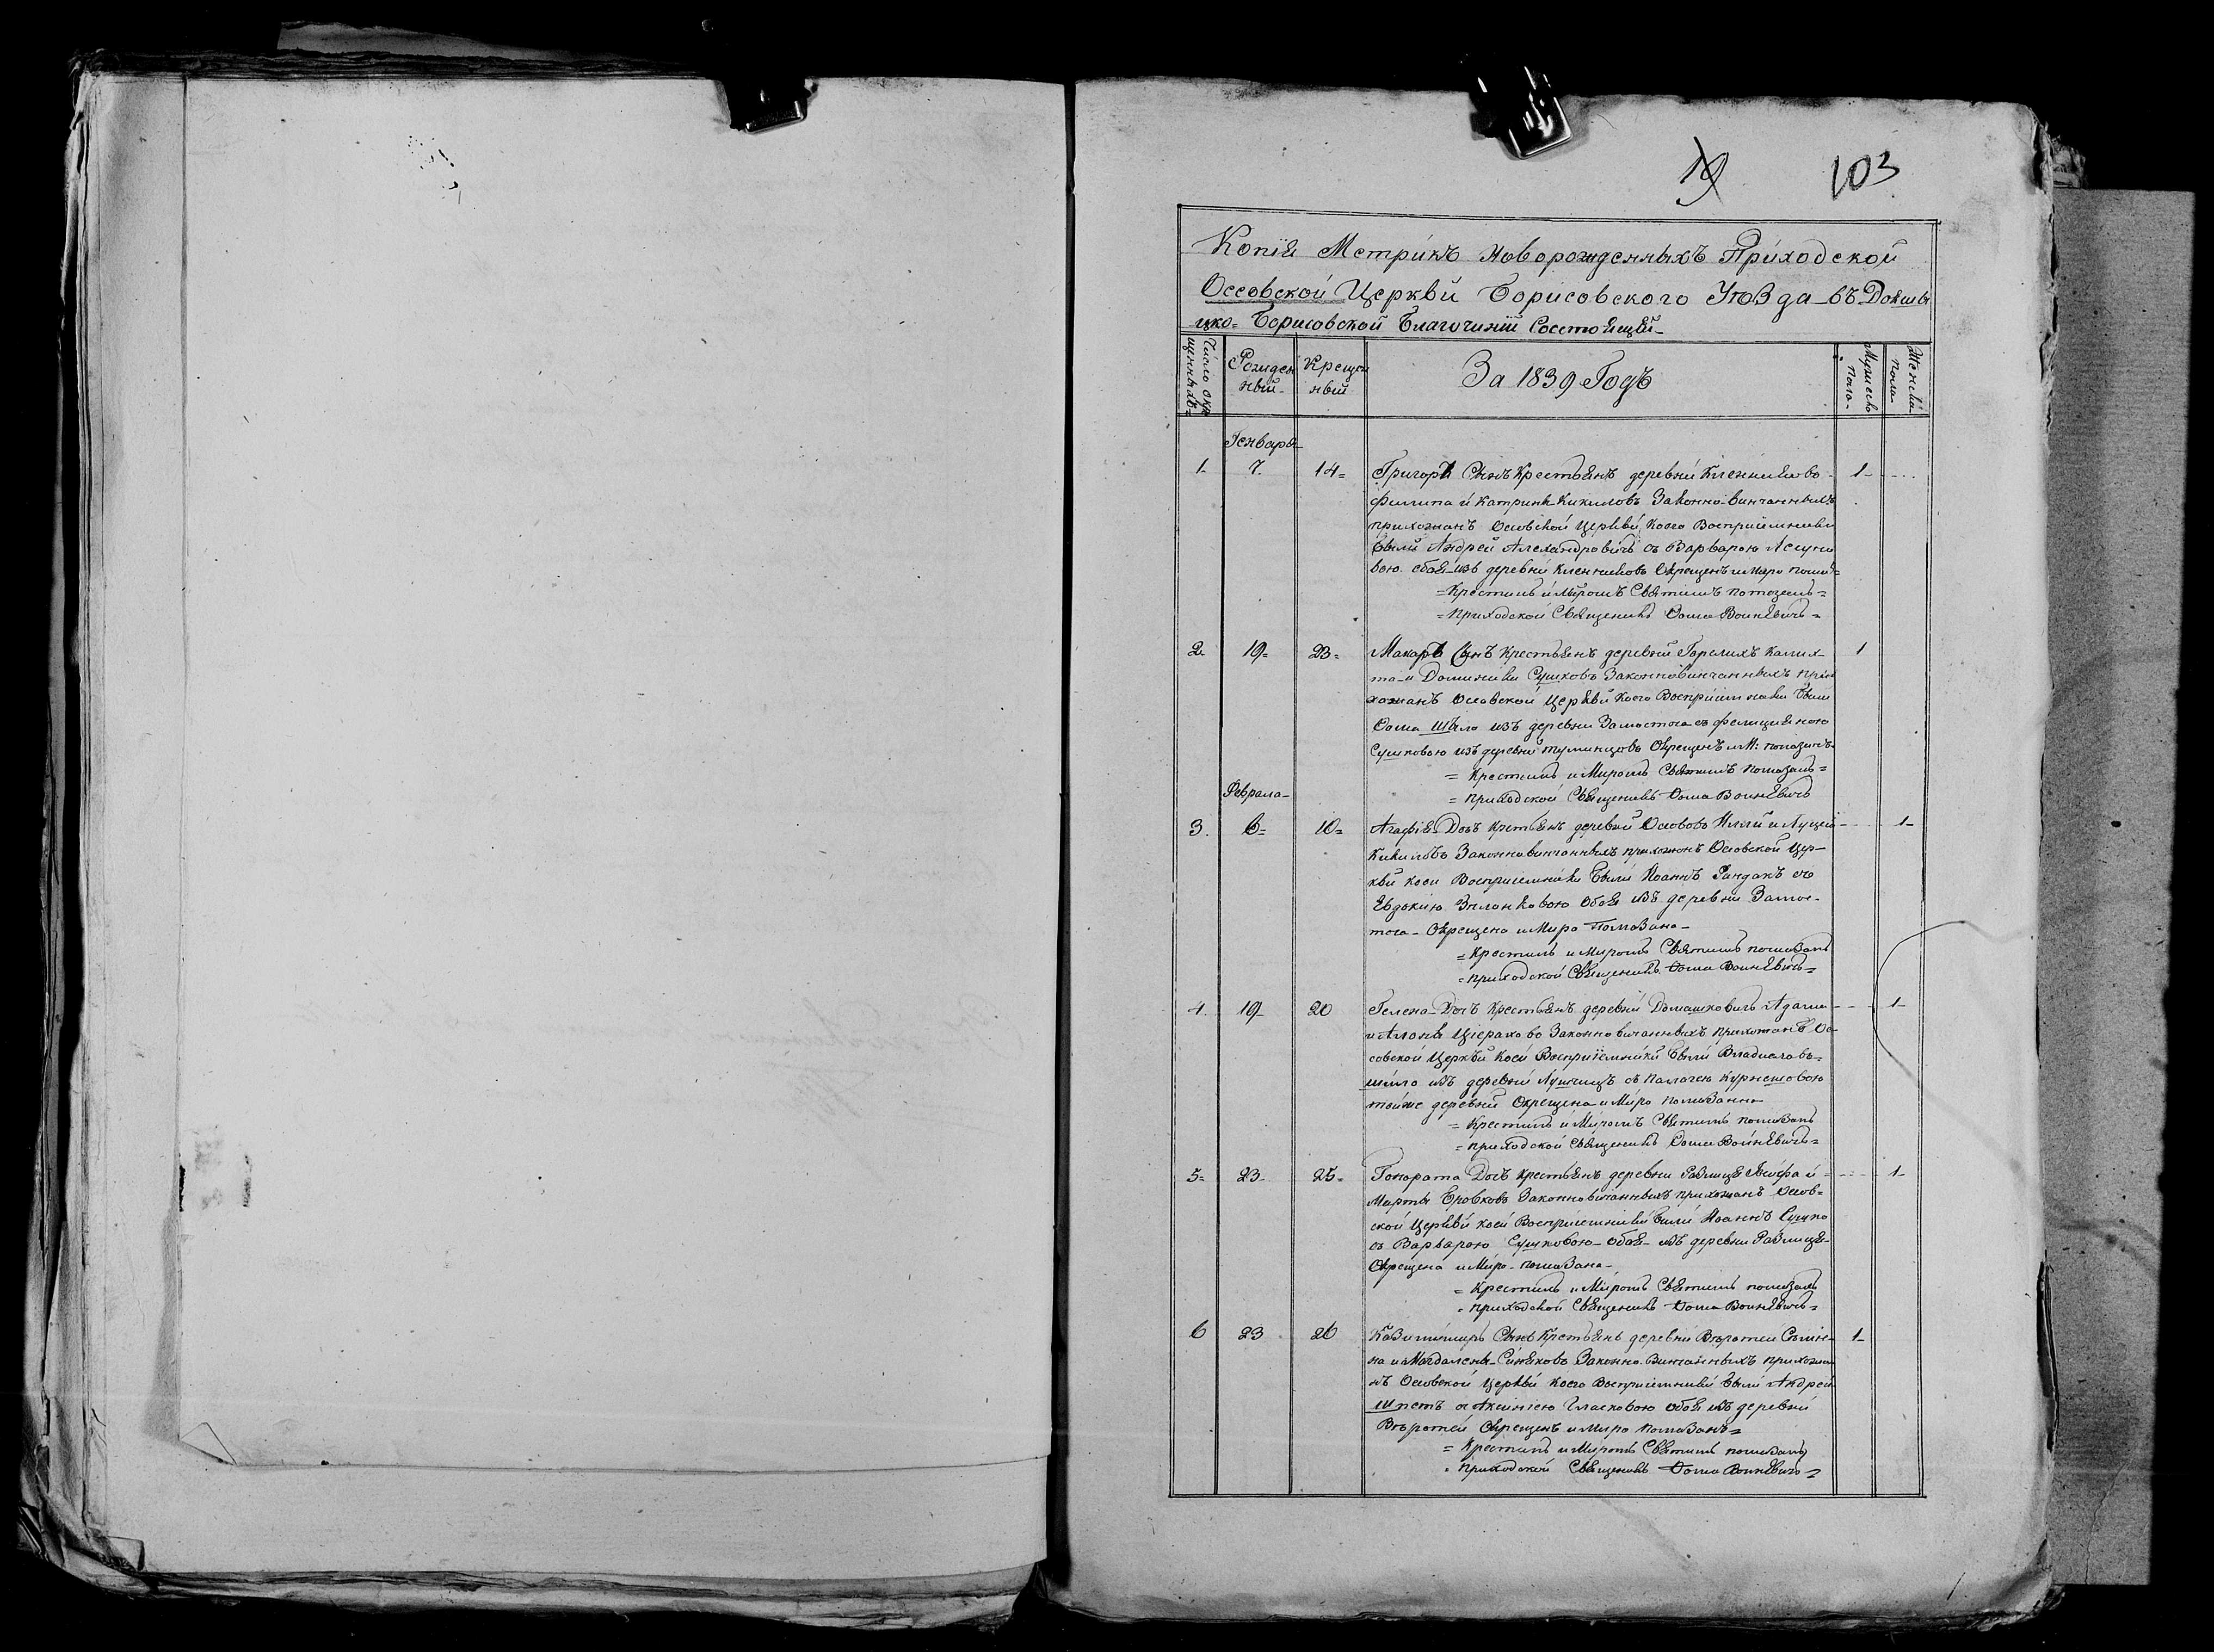 19 103
Копія Метрикъ Новорожденныхъ Приходской
Оссовской Церкви Борисовского Уѣзда въ Докши
цко= Борисовской Благочиніи Состоящей
Число окре
щенныхъ=
Рожден
ный
Крещен
ный
За 1839 Годъ
Мужеско
пола
Женска
пола
Генваря
1 7 14= Григорій Сынъ Крестьянъ деревни Кленниково 1
Филипа и Катрины Кикиловъ Законно-Винчанныхъ
прихожанъ Осовской Церкви, коего Восприемники
были Андрей Александровичъ съ Варварою
вою обоя изъ деревни Кленниковъ Окрещенъ и миро помаз=
=Крестилъ и Миромъ Святимъ помазалъ=
=Приходской Священикъ Фома Воиневичъ=
2 19= 23= Макарій Сынъ Крестьянъ деревни Горелихъ Калих 1
та и Доминики Сушковъ Законновинчанныхъ при
хожанъ Осовской Церкви Коего Восприимники были
Фома Шыло изъ деревни Замосточа съ Фелицияною
Сушковою изъ деревни Туминцовъ Окрещенъ и М: помазанъ
= Крестилъ и Миромъ Святимъ помазалъ=
Февраля
= приходской Священикъ Фома Воиневичъ
3. 6= 10= Агафія Дочь Крестьянъ деревни Осововъ Иллїи и Луции 1
Кикиловъ Законновинчанныхъ прихожанъ Осовской Цер
кви коеи Восприемники были Иоаннъ Рандакъ съ
Евдокию Зиленковою Обоя изъ деревни Замос
точа Окрещена и Миро Помазана
= Крестилъ и Миромъ Святимъ помазалъ
= приходской Священикъ Фома Воиневичъ=
4. 19 20 Гелена Дочь Крестьянъ деревни Домашковичъ Адама 1
и Алоны Законно вичанныхъ прихожанъ Ос
совской Церкви коей Восприїемники были Владиславъ
Шило изъ деревни съ Палагею Курнешовою
тойже деревни Окрещена и Миро помазанна
= Крестилъ и Миромъ Святимъ помазалъ
= приходской Священикъ Фома Войневичъ=
5= 23 25= Гонората Дочъ Крестьянъ деревни и 1
Марты Законновичанныхъ прихожанъ Осов=
ской Церкви коей Восприемники были Иоаннъ Сушко
съ Варварою Сушковою обоя изъ деревни
Окрещена и Миро помазана
= Крестилъ и Миромъ Святимъ помазалъ
= приходской Священикъ Фома Воиневичъ=
6 23 26 Казимиръ Сынъ Крестьянъ деревни Веретеи 1
на и Магдалены Синяковъ Законно Винчанныхъ прихожа
нъ Осовской Церкви коего Восприемники были Андрей
Шпетъ съ Аксинїею Гласковою обоя изъ деревни
Веретеи Окрещенъ и Миро помазанъ=
= Крестилъ и Миромъ Святимъ помазалъ
= приходской Священикъ Фома Воиневичъ=